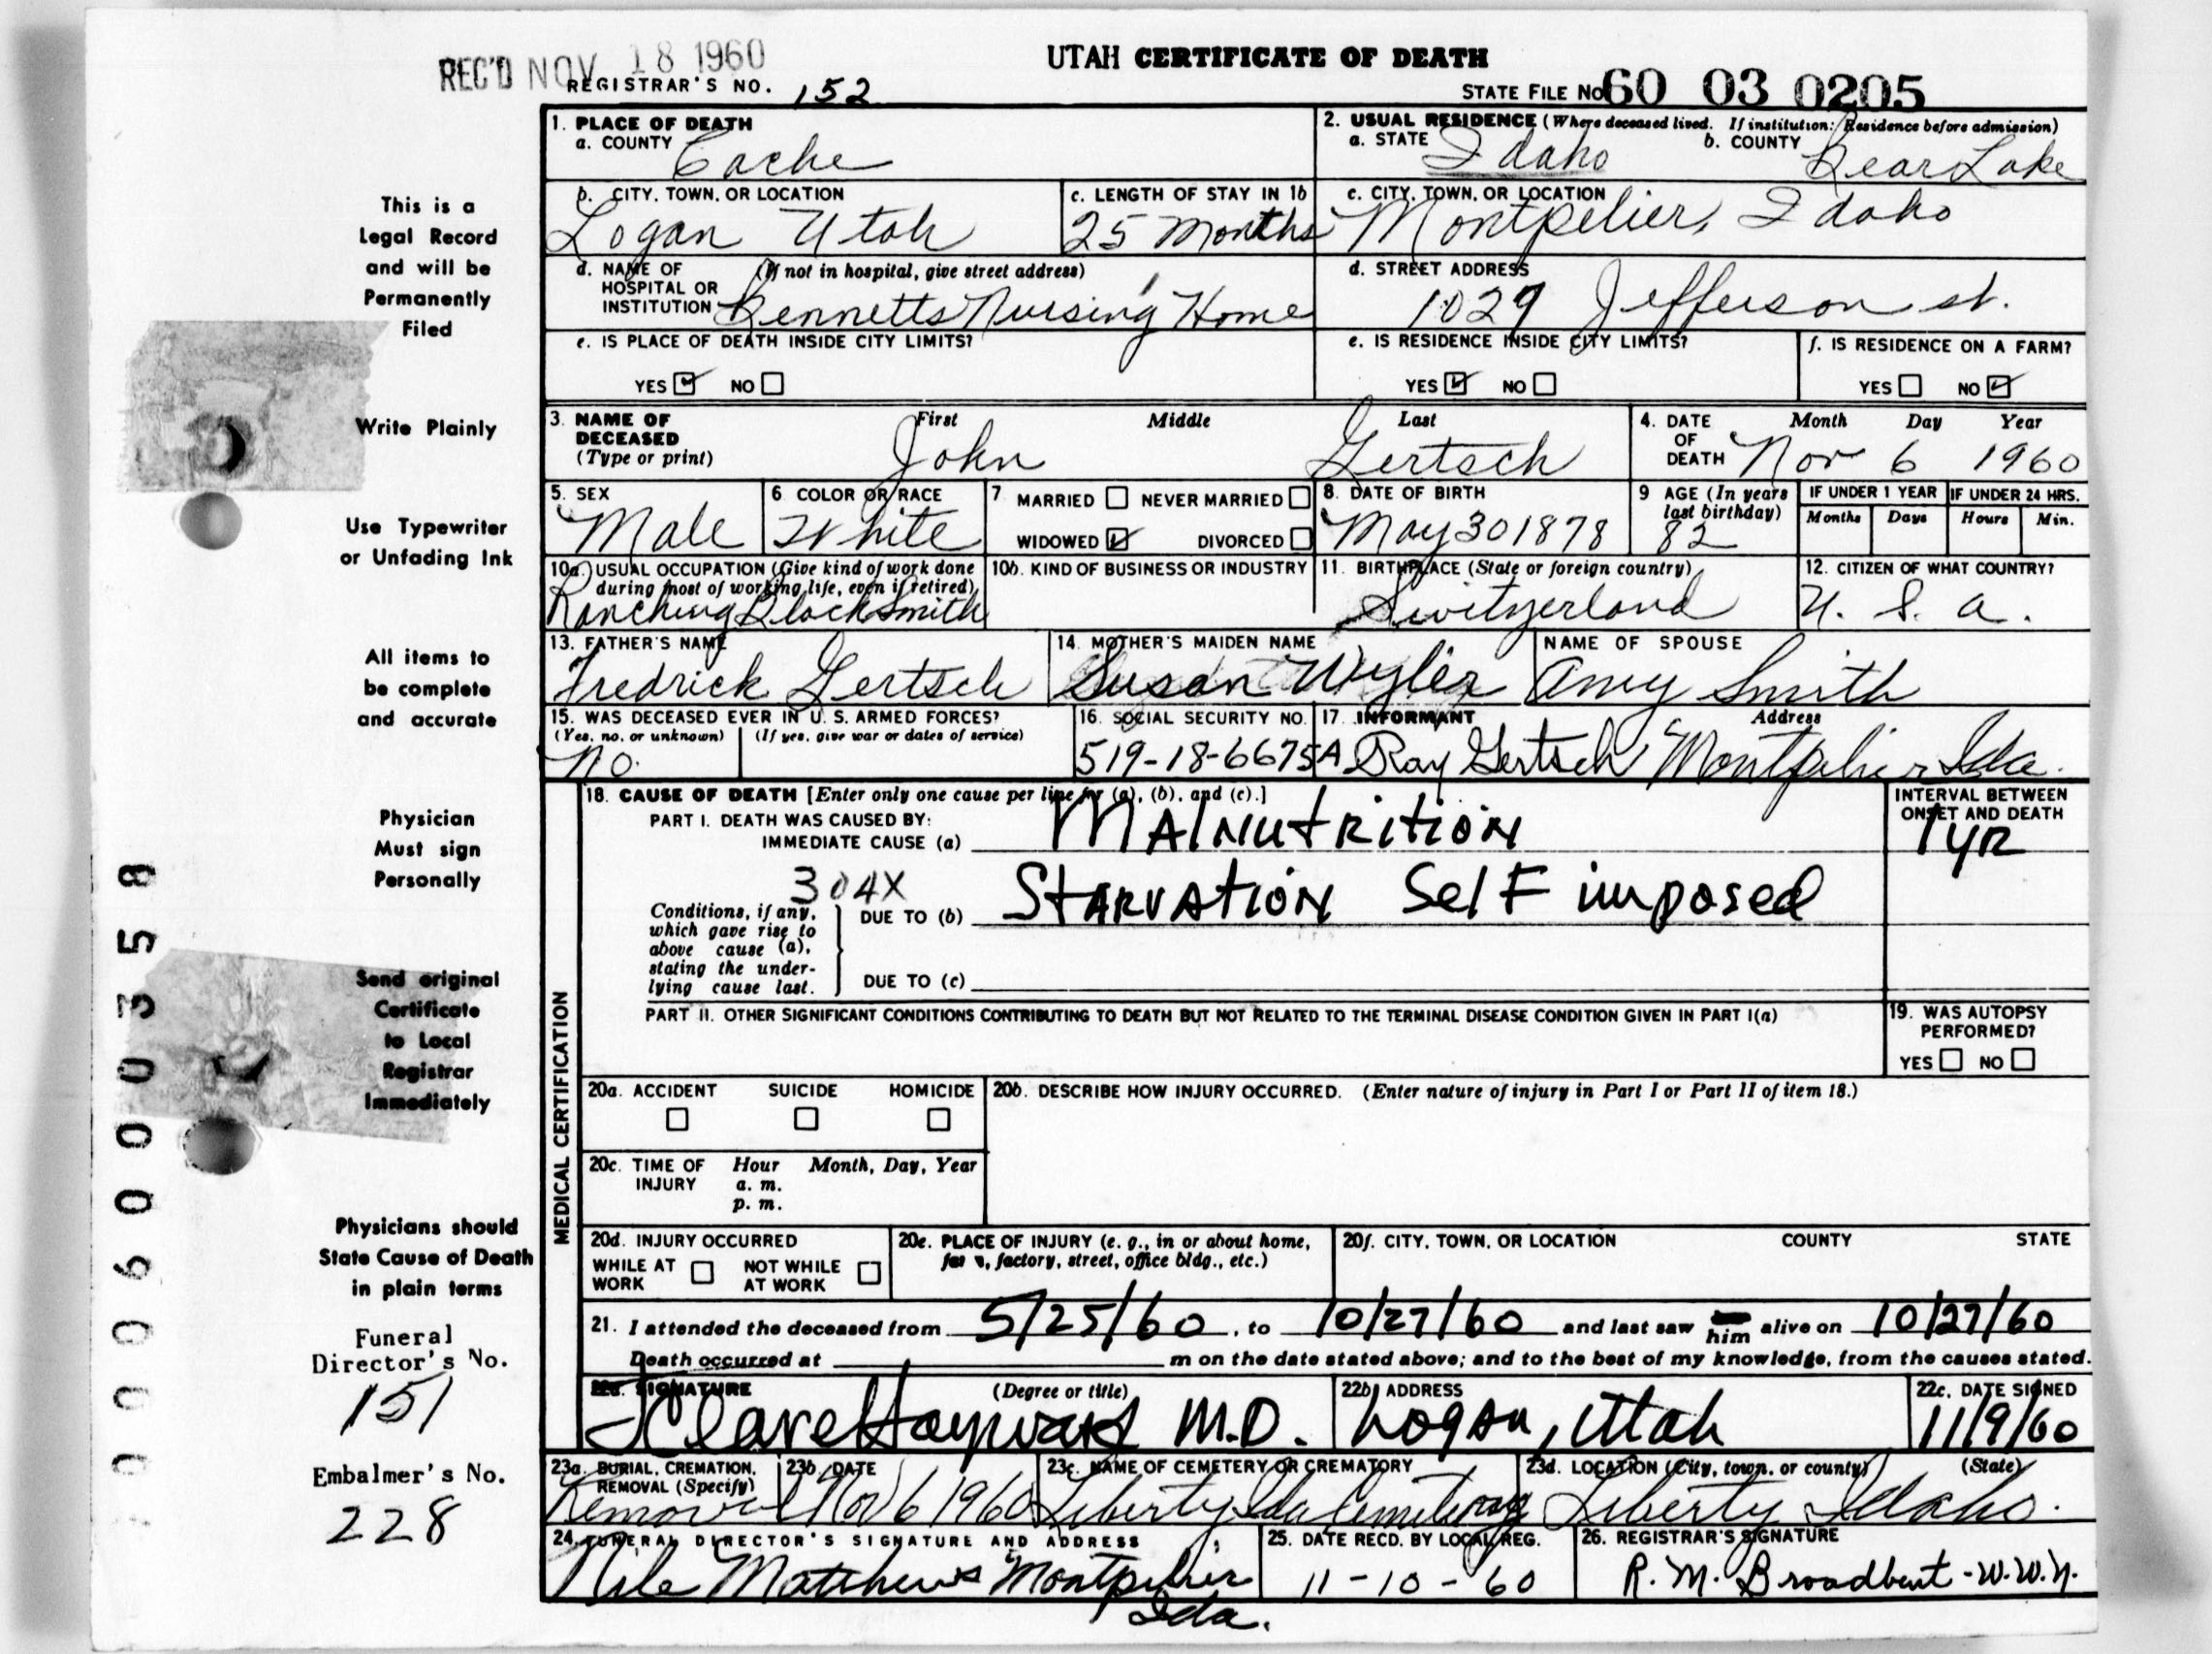 REC'D NOV 18 1960
UTAH CERTIFICATE OF DEATH
REGISTRAR'S NO. 152
STATE FILE No 60 03 0205
1. PLACE OF DEATH
a. COUNTY Cache
2. USUAL RESIDENCE (Where deceased lived. If institution: Residence before admission)
a. STATE Idaho b. COUNTY Bear Lake
b. CITY, TOWN, OR LOCATION Logan Utah
c. LENGTH OF STAY IN 1b 25 Months
c. CITY, TOWN, OR LOCATION Montpelier, Idaho
d. NAME OF HOSPITAL OR INSTITUTION (If not in hospital, give street address) Bennetts Nursing Home
d. STREET ADDRESS 1029 Jefferson st.
e. IS PLACE OF DEATH INSIDE CITY LIMITS?
YES NO
e. IS RESIDENCE INSIDE CITY LIMITS?
YES NO
f. IS RESIDENCE ON A FARM?
YES NO
3. NAME OF DECEASED (Type or print)
First Middle Last
John Gertsch
4. DATE OF DEATH Month Day Year
Nov 6 1960
5. SEX Male
6. COLOR OR RACE White
7. MARRIED NEVER MARRIED
WIDOWED DIVORCED
8. DATE OF BIRTH May 30 1878
9 AGE (In years last birthday) 82
IF UNDER 1 YEAR Months Days
IF UNDER 24 HRS. Hours Min.
10a. USUAL OCCUPATION (Give kind of work done during most of working life, even if retired)
Ranching Blacksmith
10b. KIND OF BUSINESS OR INDUSTRY
11. BIRTHPLACE (State or foreign country) Switzerland
12. CITIZEN OF WHAT COUNTRY? U. S. A.
13. FATHER'S NAME Fredrick Gertsch
14. MOTHER'S MAIDEN NAME Susan Wyler
NAME OF SPOUSE Amy Smith
15. WAS DECEASED EVER IN U. S. ARMED FORCES?
(Yes, no, or unknown) (If yes, give war or dates of service)
No.
16. SOCIAL SECURITY NO. 519-18-6675A
17. INFORMANT Address
Ray Gertsch Montpelier Ida.
MEDICAL CERTIFICATION
18. CAUSE OF DEATH [Enter only one cause per line for (a), (b), and (c).]
INTERVAL BETWEEN ONSET AND DEATH
PART I. DEATH WAS CAUSED BY:
IMMEDIATE CAUSE (a) MAlNutRition 1 yR
304X
Conditions, if any, which gave rise to above cause (a), stating the underlying cause last.
DUE TO (b) STARVAtioN SelF imposed
DUE TO (c)
PART II. OTHER SIGNIFICANT CONDITIONS CONTRIBUTING TO DEATH BUT NOT RELATED TO THE TERMINAL DISEASE CONDITION GIVEN IN PART I(a)
19. WAS AUTOPSY PERFORMED?
YES NO
20a. ACCIDENT SUICIDE HOMICIDE
20b. DESCRIBE HOW INJURY OCCURRED. (Enter nature of injury in Part I or Part II of item 18.)
20c. TIME OF INJURY Hour Month, Day, Year
a. m.
p. m.
20d. INJURY OCCURRED
WHILE AT WORK NOT WHILE AT WORK
20e. PLACE OF INJURY (e. g., in or about home, factory, street, office bldg., etc.)
20f. CITY, TOWN, OR LOCATION COUNTY STATE
21. I attended the deceased from 5/25/60, to 10/27/60 and last saw him alive on 10/27/60
Death occurred at m on the date stated above; and to the best of my knowledge, from the causes stated.
22a. SIGNATURE (Degree or title)
J Clare Hayward M.D.
22b. ADDRESS Logan, Utah
22c. DATE SIGNED 11/9/60
23a. BURIAL, CREMATION, REMOVAL (Specify) Removal
23b. DATE Nov 6 1960
23c. NAME OF CEMETERY OR CREMATORY Liberty Ida Cemetery
23d. LOCATION (City, town, or county) (State)
Liberty Idaho.
24. FUNERAL DIRECTOR'S SIGNATURE AND ADDRESS
Nile Matthews Montpelier Ida.
25. DATE RECD. BY LOCAL REG. 11-10-60
26. REGISTRAR'S SIGNATURE R. M. Broadbent - W.W.N.
This is a
Legal Record
and will be
Permanently
Filed
Write Plainly
Use Typewriter
or Unfading Ink
All items to
be complete
and accurate
Physician
Must sign
Personally
Send original
Certificate
to Local
Registrar
Immediately
Physicians should
State Cause of Death
in plain terms
Funeral
Director's No.
151
Embalmer's No.
228